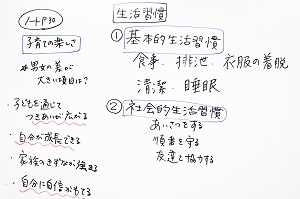 ノートP30
子育ての楽しさ
☆男女の差が
大きい項目は?
・子どもを通じて
つきあいが広がる
・自分が成長できる
・家族のきずなが強まる
・自分に自信がもてる
生活習慣
① 基本的生活習慣
食事、排泄、衣服の着脱
清潔、睡眠
② 社会的生活習慣
あいさつをする
順番を守る
友達と協力する